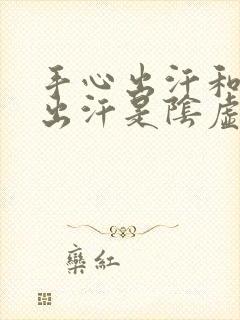 手心出汗和
出汗是陰虛
欒紅